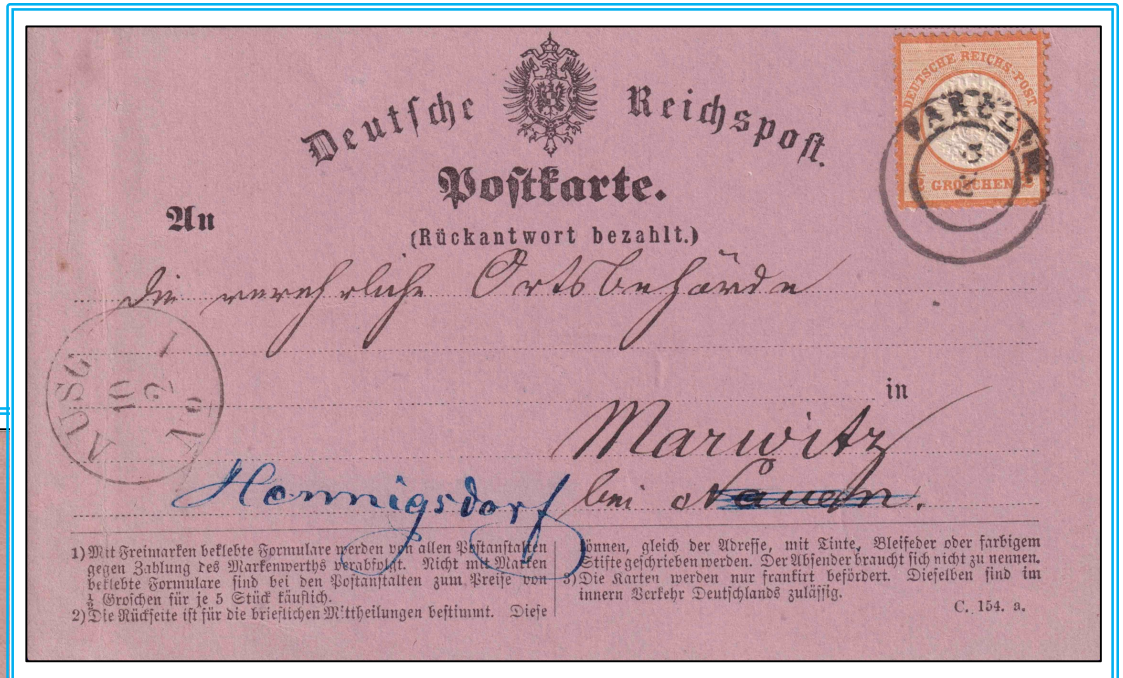 Deutsche Reichspost.
Postkarte.
(Rückantwort bezahlt.)
DEUTSCHE REICHS-POST
GROSCHEN
3
2
An
die verehrliche Ortsbehörde
AUSG
1
2
10
in
Marwitz
Hennigsdorf bei Nauen.
1) Mit Freimarken beklebte Formulare werden von allen Postanstalten
gegen Zahlung des Markenwerths verabfolgt. Nicht mit Marken
beklebte Formulare sind bei den Postanstalten zum Preise von
½ Groschen für je 5 Stück käuflich.
2) Die Rückseite ist für die brieflichen Mittheilungen bestimmt. Diese
können, gleich der Adresse, mit Tinte, Bleifeder oder farbigem
Stifte geschrieben werden. Der Absender braucht sich nicht zu nennen.
3) Die Karten werden nur frankirt befördert. Dieselben sind im
innern Verkehr Deutschlands zulässig.
C. 154. a.